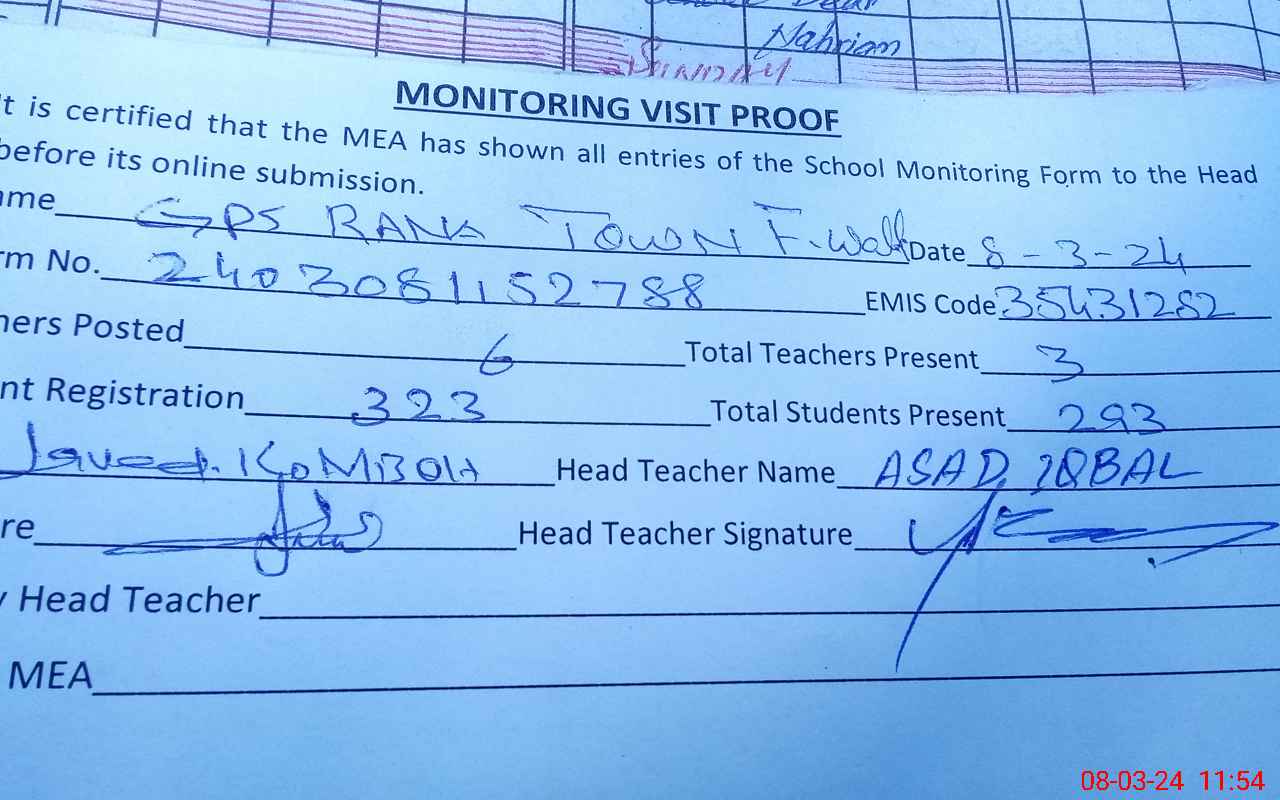 Nahrian
SUNDAY
MONITORING VISIT PROOF
It is certified that the MEA has shown all entries of the School Monitoring Form to the Head
before its online submission.
ame GPS RANA TOWN F.Wala Date 8-3-24
rm No. 2403081152788 EMIS Code 35431282
hers Posted 6 Total Teachers Present 3
nt Registration 323 Total Students Present 293
Javed. KOMBOH Head Teacher Name ASAD IQBAL
re Head Teacher Signature
y Head Teacher
MEA
08-03-24 11:54